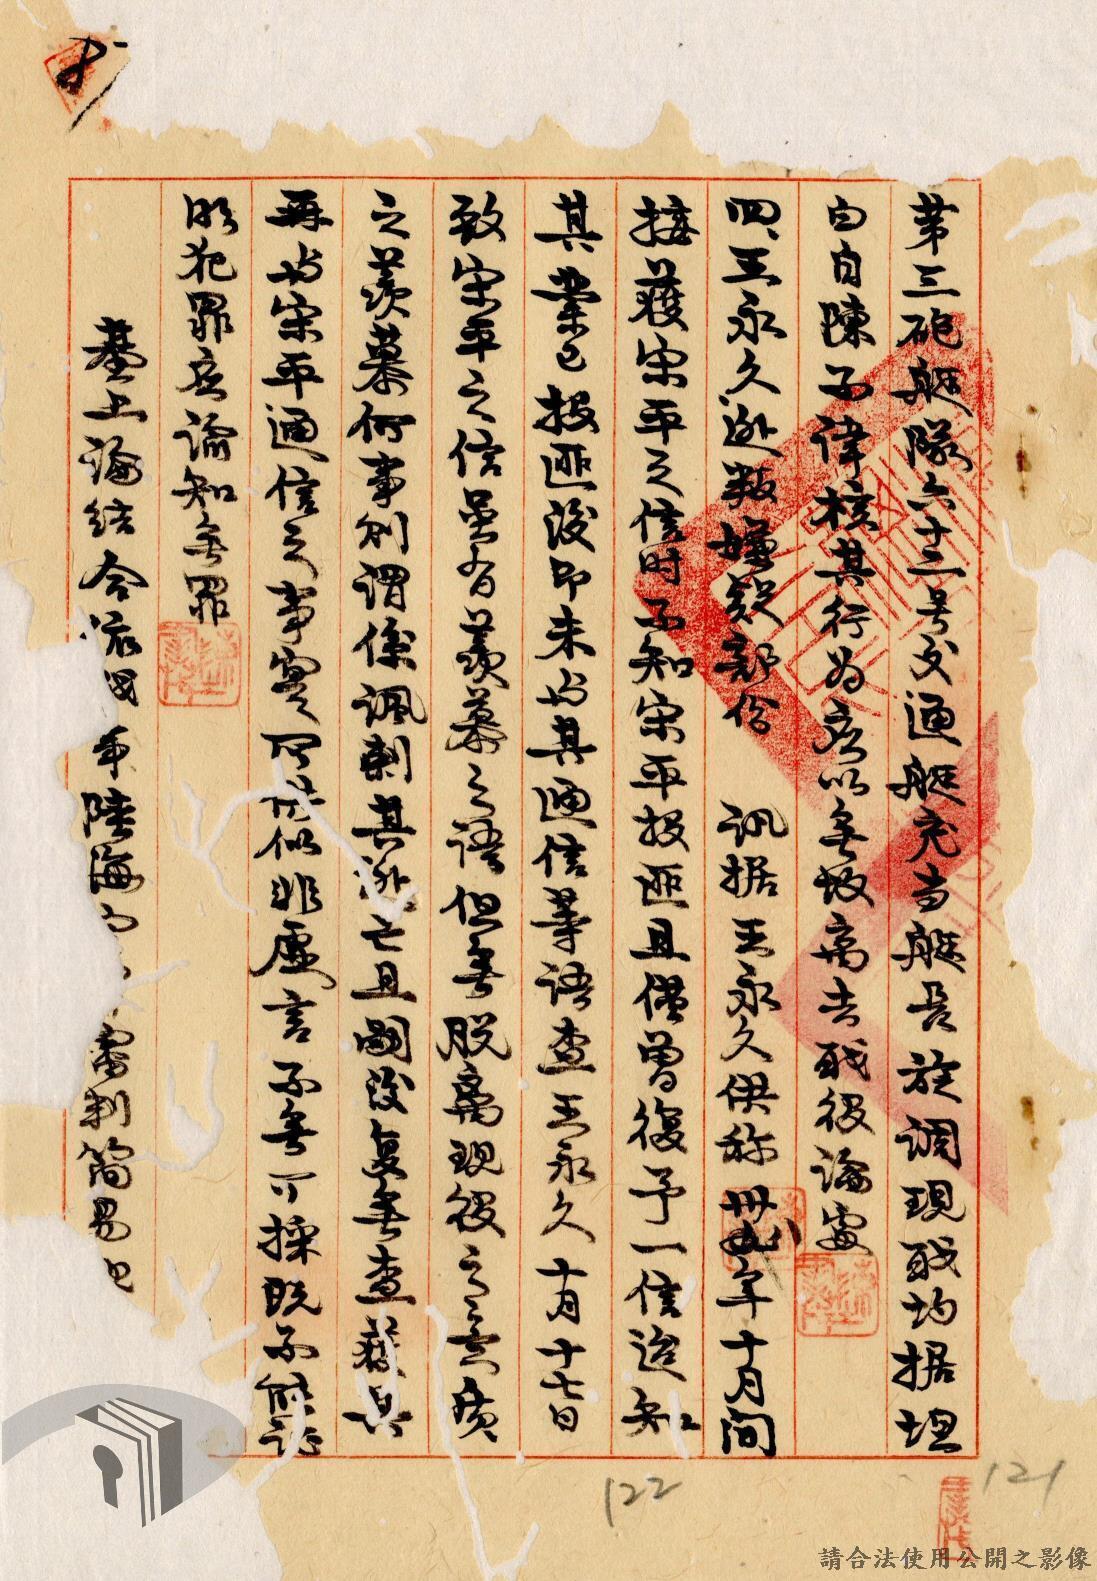 第三砲艇隊六十三号交通艇充当艇長旋調現職均据坦
白自陳不諱核其行為应以無故离去職役論處
四、王永久逃叛嫌疑部份 訊据王永久供称卅八年十月間
接獲宋平之信時不知宋平投匪且僅曾復予一信迨知
其業已投匪後即未与其通信等語查王永久十月十七日
致宋平之信虽有羨慕之語但無脫离現役之意質
之羨慕何事則謂係諷刺其逃亡且嗣後复無查获其
再与宋平通信之事实所供似非虛言不無可採既不能証
明犯罪应諭知無罪
基上論結合依 陸海 審判簡易
122
121
請合法使用公開之影像